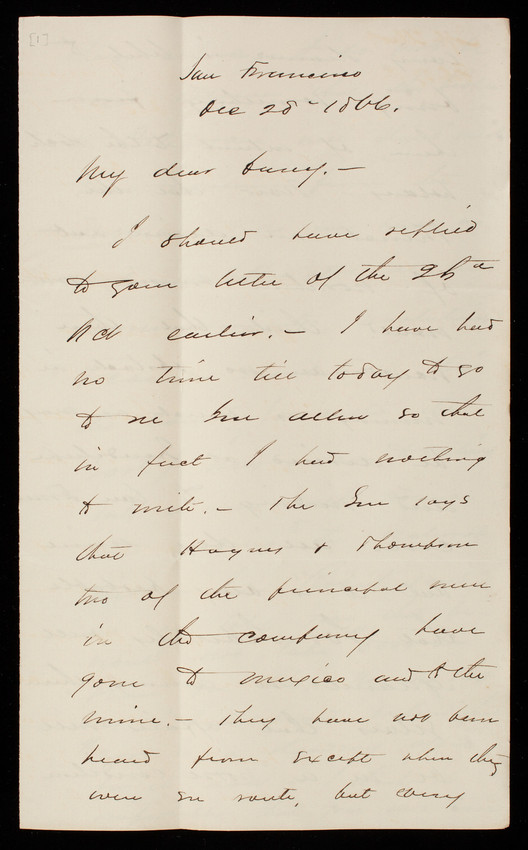 [1]
San Francisco
Dec 28 - 1866.
My dear Casey. -
I should have replied
to your letter of the 26th
earlier. - I have had
no time till today to go
to see Gen Allen so that
in fact I had nothing
to write. - The Gen says
that Haynes & Thompson
two of the principal men
in the company have
gone to Mexico and to the
mine. - They have not been
heard from except when they
were en route, but every